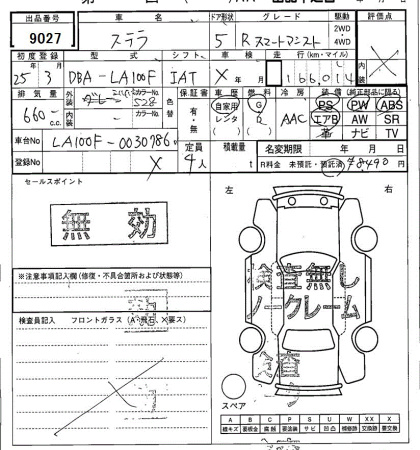 出品番号 車名 ドア形状 グレード 駆動 評価点
9027 ステラ 5 R スマートアシスト 2WD ・ 4WD
初度登録 型式 シフト 車検 走行(km・マイル) 内装
25年 3月 DBA-LA100F IAT X 年 月 166,014
排気量 外装 カラーNo. 色替 保証書 車歴 燃料 冷房 装備(純正部品に限る)
660 c.c. 528 有・無 自家用 レンタ G D AAC PS PW ABS
内装 カラーNo. エアB AW SR
革 ナビ TV
車台No LA100F-0030786 定員 積載量 名変期限 年 月 日
登録No X 4人 t R料金 未預託・預託済 ¥8490 円
セールスポイント
左 右
無効
検査無し
ノークレーム
※注意事項記入欄(修復・不具合箇所および状態等)
検査員記入 フロントガラス(A・飛石、X要ス)
検査
スペア
A B C P S U W XX X
線キズ 要板金 腐蝕 要塗装 サビ 凹凸 補修跡 交換跡 要交換